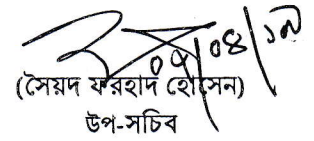 ০৭/০৪/১৯
(সৈয়দ ফরহাদ হোসেন)
উপ-সচিব